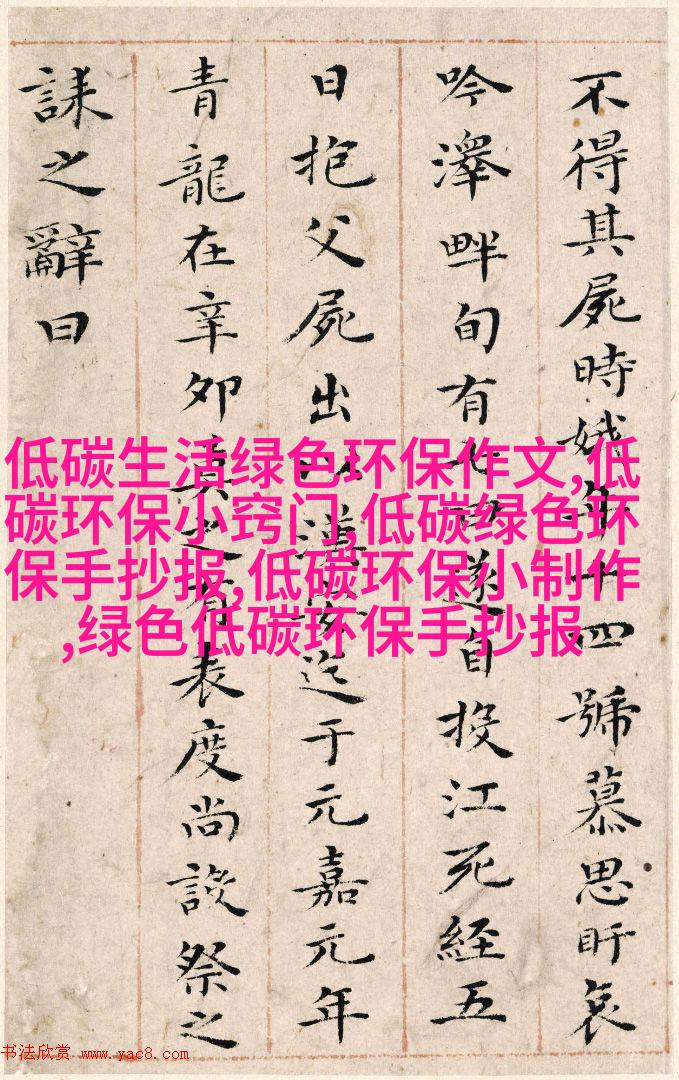 不得其屍時娥年十四號慕思盱哀
吟澤畔旬有七日遂自投江死經五
日抱父屍出以漢安迄于元嘉元年
青龍在辛卯莫之有表度尚設祭之
誄之辭曰
低碳生活绿色环保作文,低
碳环保小窍门,低碳绿色环
保手抄报,低碳环保小制作
,绿色低碳环保手抄报
书法欣赏 www.yac8.com